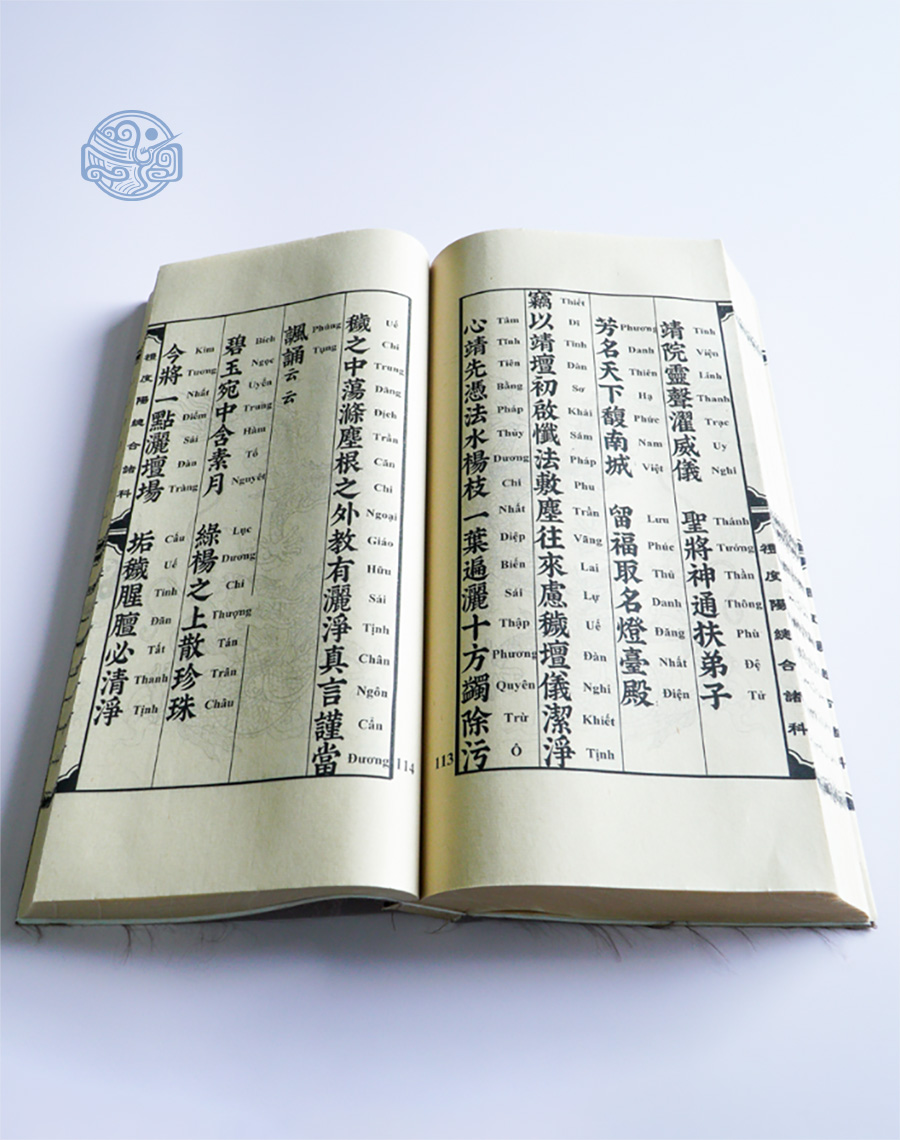 靖院靈聲濯威儀 聖將神通扶弟子
Tỉnh Viện Linh Thanh Trạc Uy Nghi Thánh Tướng Thần Thông Phù Đệ Tử
芳名天下馥南城 留福取名燈臺殿
Phương Danh Thiên Hạ Phức Nam Việt Lưu Phúc Thủ Danh Đăng Nhất Điện
竊以靖壇初啟懺法敷塵往來慮穢壇儀潔淨
Thiết Dĩ Tỉnh Đàn Sơ Khải Sám Pháp Phu Trần Vãng Lai Lự Uế Đàn Nghi Khiết Tịnh
心靖先憑法水楊枝一葉遍灑十方蠲除污
Tâm Tĩnh Tiên Bằng Pháp Thủy Dương Chi Nhất Diệp Biến Sái Thập Phương Quyên Trừ Ô
113
穢之中蕩滌塵根之外教有灑淨真言謹當
Uế Chi Trung Đãng Địch Trần Căn Chi Ngoại Giáo Hữu Sái Tịnh Chân Ngôn Cẩn Đương
諷誦云云
Phúng Tụng
碧玉宛中含素月 綠楊之上散珍珠
Bích Ngọc Uyển Trung Hàm Tố Nguyệt Lục Dương Chi Thượng Tán Trân Châu
今將一點灑壇場 垢穢腥膻必清淨
Kim Tương Nhất Điểm Sái Đàn Tràng Cấu Uế Tinh Đãn Tất Thanh Tịnh
114